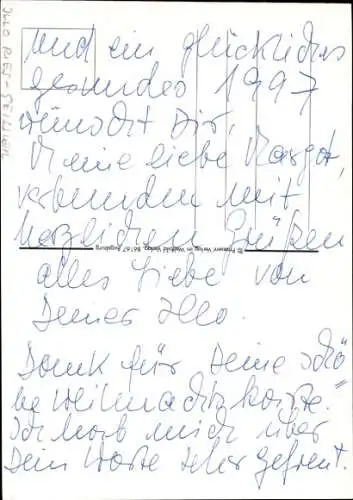 und ein glückliches
gesundes 1997
wünscht Dir,
meine liebe Margot,
verbunden mit
herzlichen Grüßen
alles Liebe von
Deiner Ilo.
Dank für Deine schö
ne Weihnachtskarte.
Ich hab mich über
Dein Karte sehr gefreut.
Verlag, 86167 Augsburg